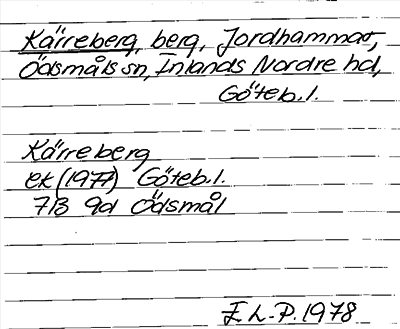 Kärreberg, berg, Jordhammar,
Ödsmåls sn, Inlands Nordre hd,
Göteb.l.
Kärreberg
ek (1977) Göteb.l.
7B 9d Ödsmål
E L-P. 1978